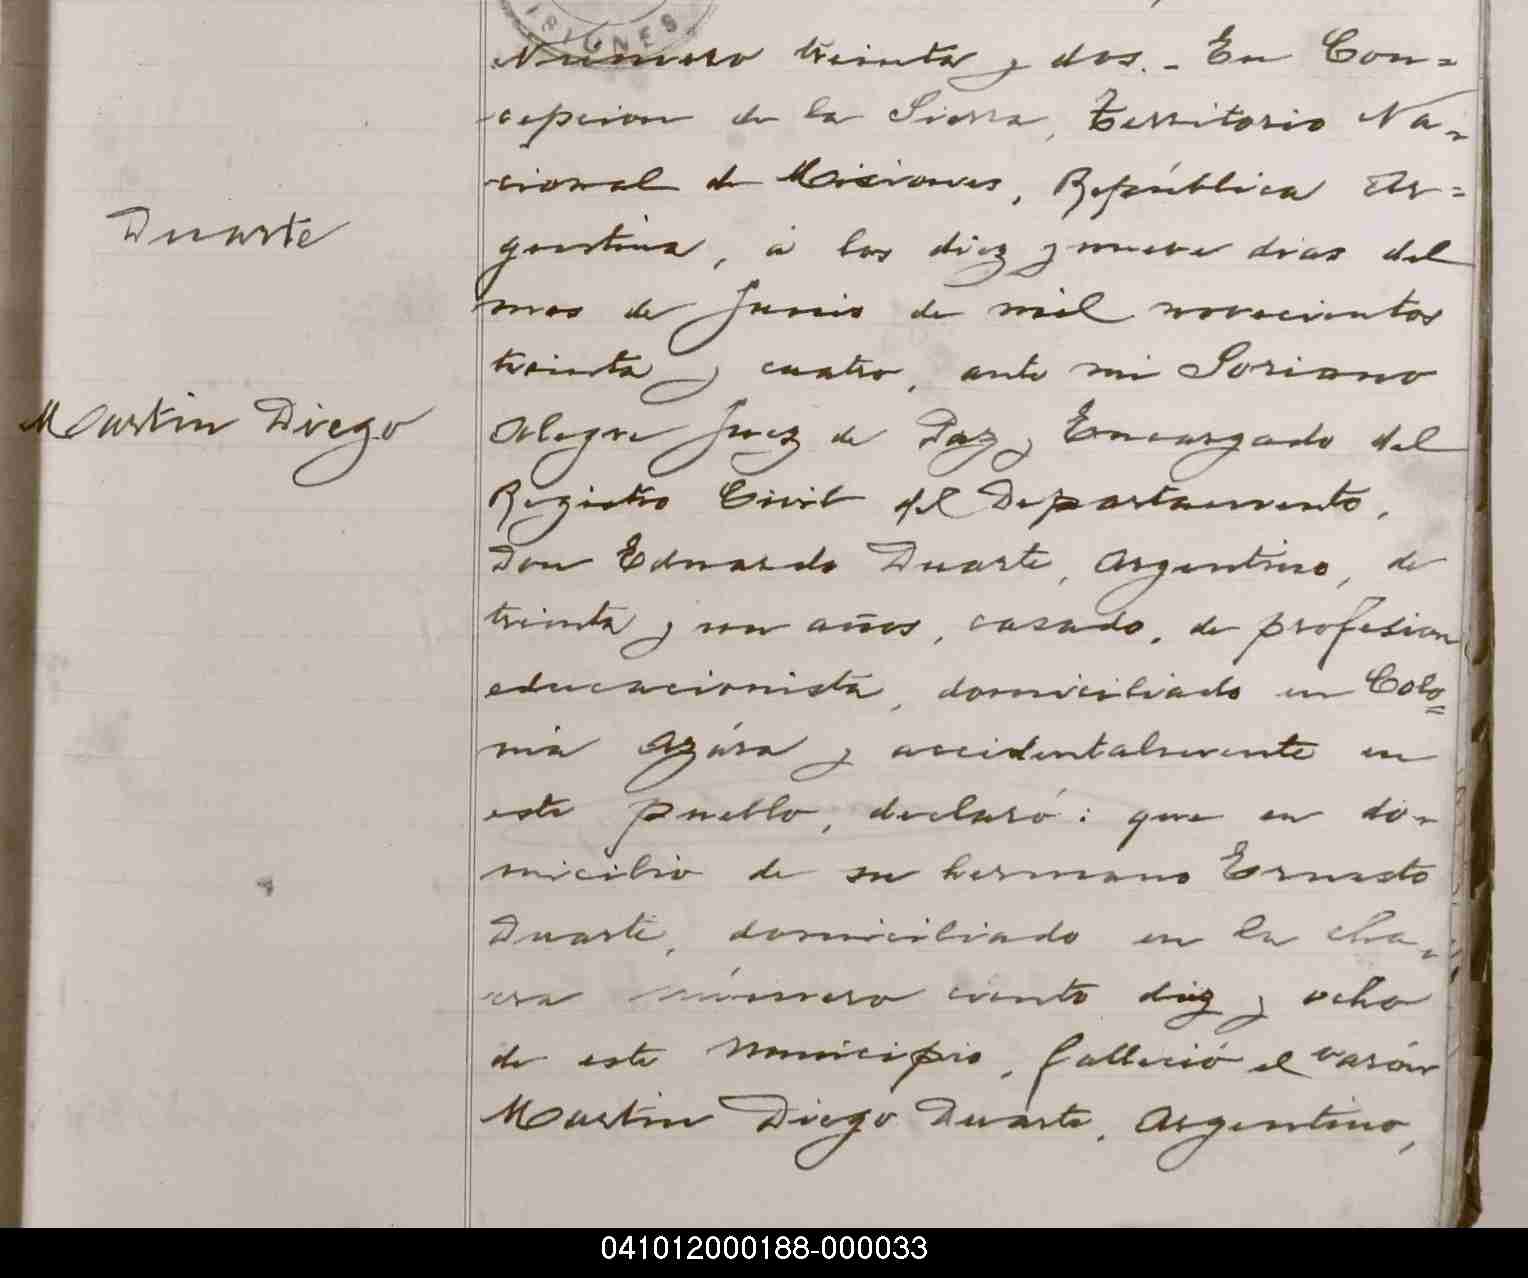 ISIONES
Numero treinta y dos. - En Con=
cepcion de la Sierra, Territorio Na-
cional de Misiones, República Ar=
gentina, á los diez y nueve dias del
mes de Junio de mil novecientos
treinta y cuatro, ante mi Soriano
Alegre Juez de Paz y Encargado del
Registro Civil del Departamento,
Don Eduardo Duarte, Argentino, de
treinta y un años, casado, de profesion
educacionista, domiciliado en Colo=
nia Azára y accidentalmente en
este pueblo, declaró: que en do-
micilio de su hermano Ernesto
Duarte, domiciliado en la cha-
cra número ciento diez y ocho
de este Municipio, falleció el varón
Martin Diego Duarte, Argentino,
Duarte
Martin Diego
041012000188-000033